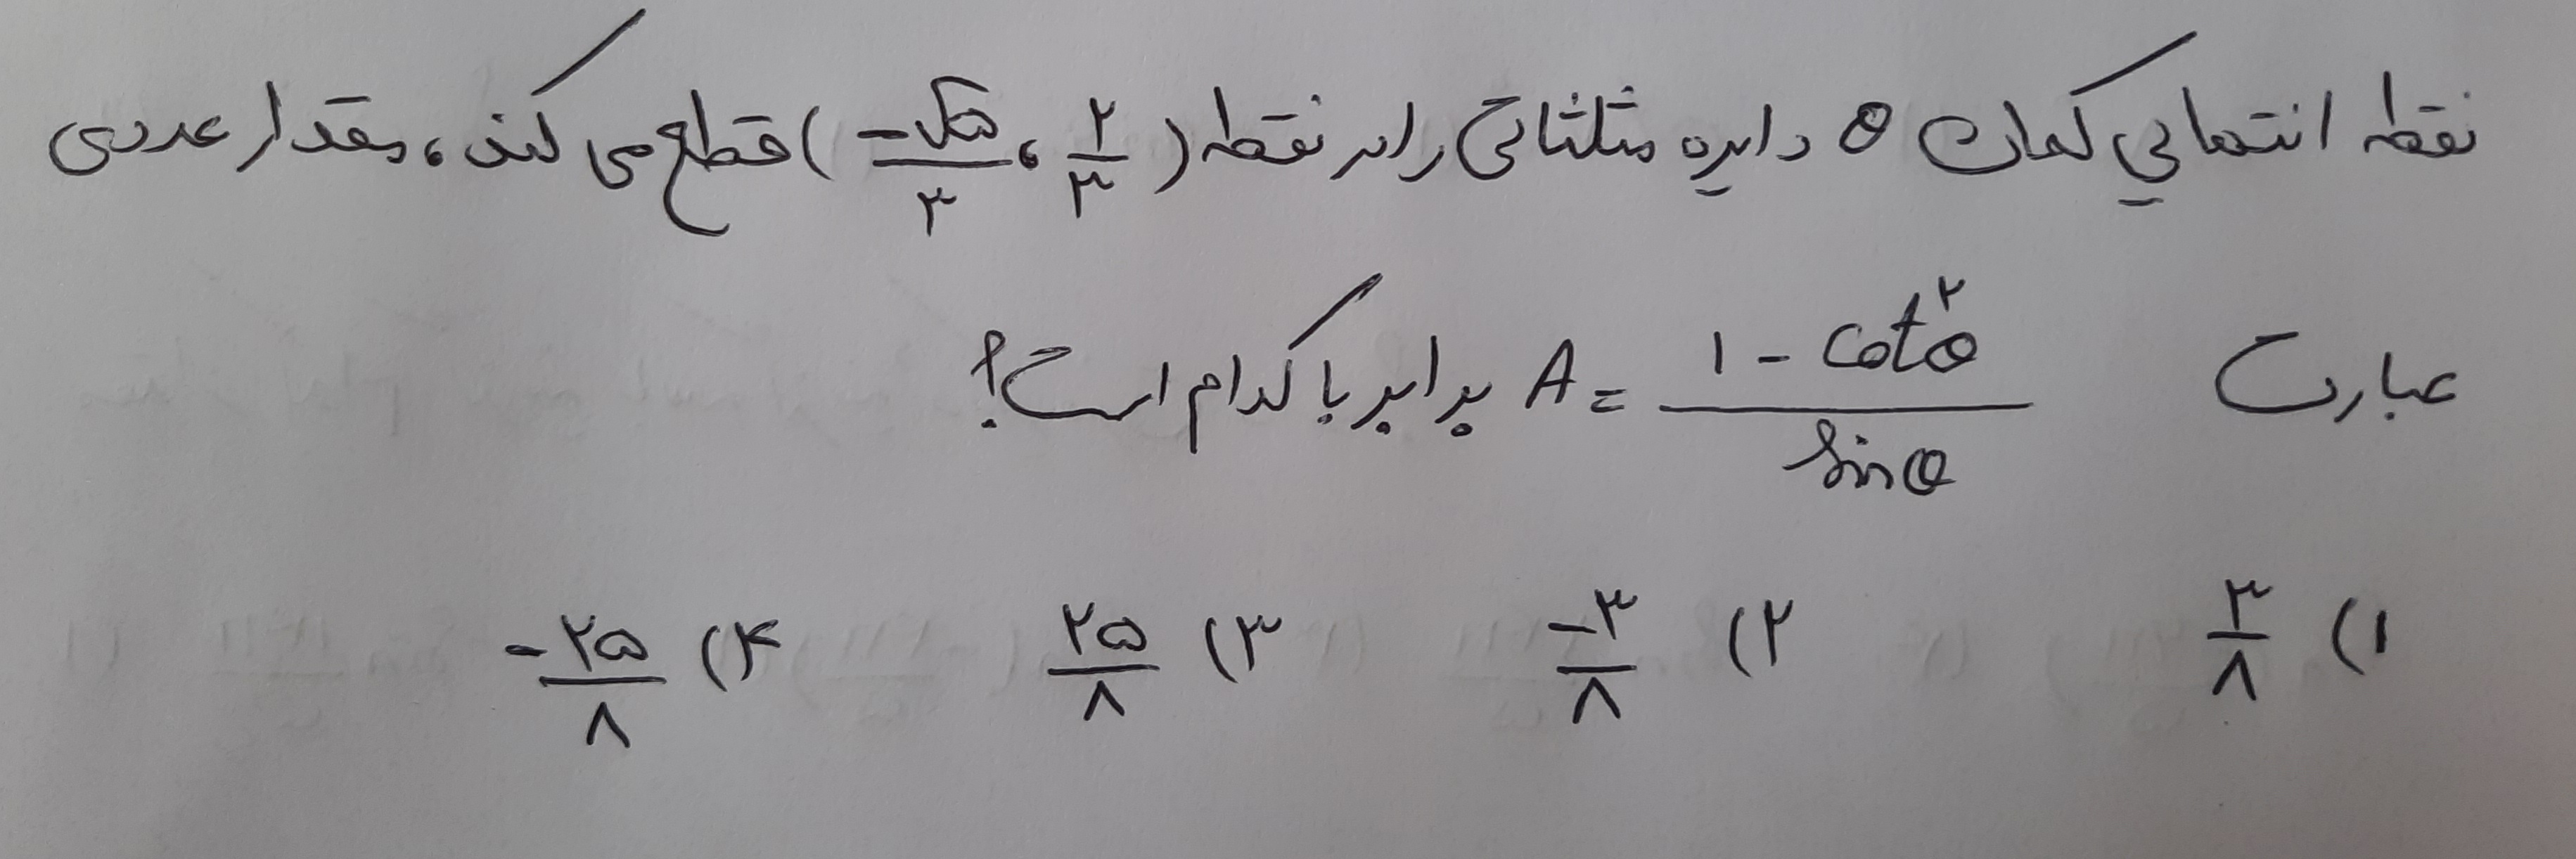 نقطه انتهایی کمان θ دایره مثلثاتی را در نقطه (-√۵/۳ ، ۲/۳) قطع می کند، مقدار عددی
عبارت A = (۱ - cot²θ)/sinθ برابر با کدام است؟
۱) ۳/۸ ۲) -۳/۸ ۳) ۲۵/۸ ۴) -۲۵/۸